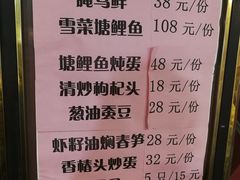 腌笃鲜 38 元/份
雪菜塘鲤鱼 108 元/份
塘鲤鱼炖蛋 48 元/份
清炒枸杞头 18 元/份
葱油蚕豆 28 元/份
虾籽油焖春笋 28 元/份
香椿头炒蛋 32 元/份
5 只/15 元